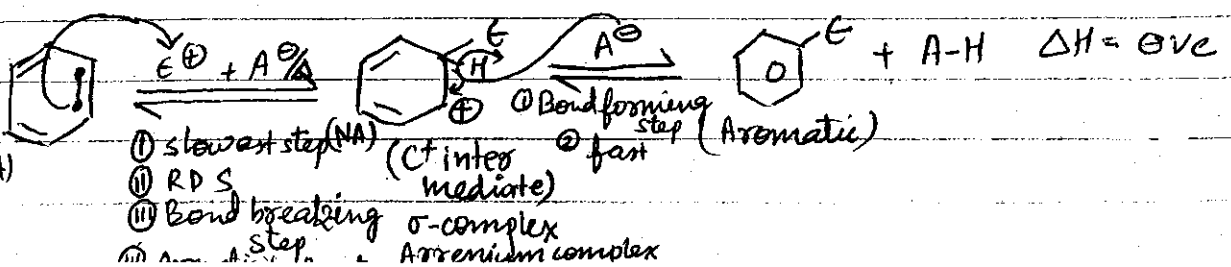 E⊕ + A⊖/Δ
E
H
⊕
A⊖
E
+ A-H ΔH = ⊖ve
① slowest step (NA)
② RDS
③ Bond breaking
step
(C⁺ inter
mediate)
σ-complex
Arrenium complex
① Bond forming
step
② fast
(Aromatic)